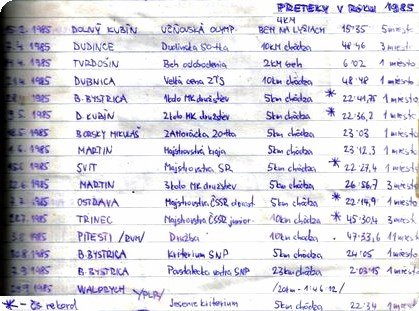 PRETEKY V ROKU 1985
1985 DOLNÝ KUBÍN 4KM BEH NA LYŽIACH 15'35 5miesto
.4. 1985 DUDINCE Dudinská 50-tka 10km chôdza 48'46 3miesto
.4. 1985 TVRDOŠÍN Beh oslobodenia 2km beh 6'02 1 miesto
.4. 1985 DUBNICA Veľká cena ZŤS 10km chôdza 48'48 1 miesto
1985 B. BYSTRICA 1kolo MK družstiev 5km chôdza * 22'41,75 1 miesto
.5. 1985 D. KUBÍN 2kolo MK družstiev 5km chôdza * 22'36,2 1 miesto
.5. 1985 BORSKÝ MIKULÁŠ Záhorácka 20tka 5km chôdza 23'03 1 miesto
.6. 1985 MARTIN Majstrovstvá kraja 5km chôdza 23'12,3 1 miesto
.6. 1985 SVIT Majstrovstvá SR 5km chôdza * 22'27,4 1 miesto
.6. 1985 MARTIN 3kolo MK družstiev 5km chôdza 26'56,7 3 miesto
.7. 1985 OSTRAVA Majstrovstvá ČSSR dorast 5km chôdza * 22'14,9 1 miesto
.7. 1985 TRINEC Majstrovstvá ČSSR junior. 10km chôdza * 45'30,4 3 miesto
.8. 1985 PITESTI /RUM/ Družba 10km chôdza 47'33,6 11 miesto
.8. 1985 B. BYSTRICA Kritérium SNP 5km chôdza 24'05 1 miesto
.9. 1985 B. BYSTRICA Povstalecká vatra SNP 23km chôdza 2:03'45 1 miesto
.9. 1985 WALBRYCH /PLR/ /20km - 1:46'12/
* - čs rekord Jesenné kritérium 5km chôdza 22'34 1 miesto